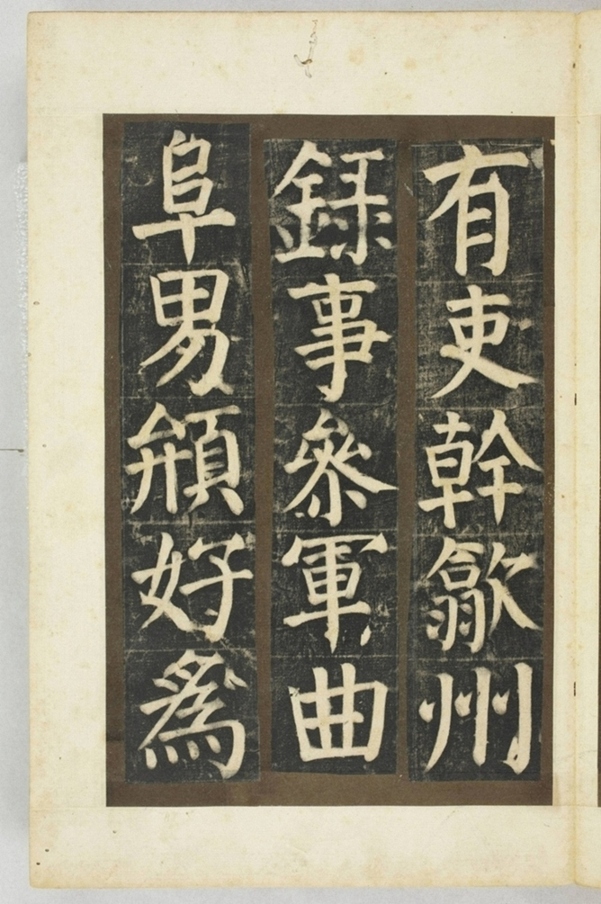 有吏幹歙州
錄事參軍曲
阜男頩好爲